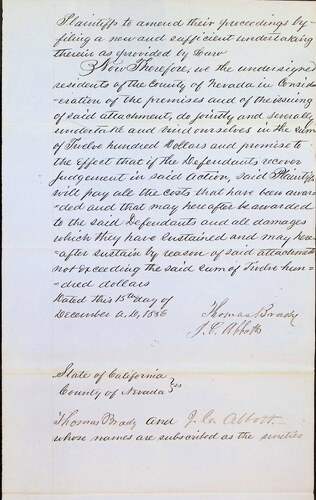 Plaintiffs to amend their proceedings by
filing a new and sufficient undertaking
therein as provided by Law
Now Therefore, we the undersigned
residents of the County of Nevada in Consid-
=eration of the premises and of the issuing
of said attachment, do jointly and severally
undertake and bind ourselves in the sum
of Twelve hundred Dollars and promise to
the Effect that if the Defendants recover
Judgement in said Action, said Plaintiffs
will pay all the Costs that have been awar-
=ded and that may hereafter be awarded
to the said Defendants and all damages
which they have Sustained and may here-
=after sustain by reason of said attachment
not Exceeding the said Sum of Twelve hun-
=dred dollars
Dated this 15th day of
December A.D, 1856
Thomas Brady
J. C. Abbott
State of California
County of Nevada } ss
Thomas Brady and J. C. Abbott
whose names are subscribed as the sureties